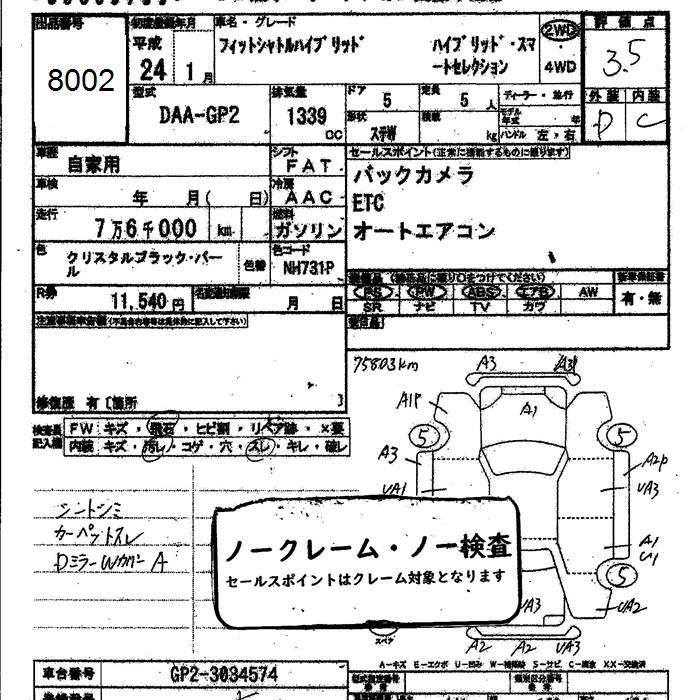 出品番号
8002
初度登録年月
平成
24 1 月
車名・グレード
フィットシャトルハイブリッド
ハイブリッド・スマ
ートセレクション
2WD
・
4WD
評価点
3.5
外装 内装
D C
型式
DAA-GP2
排気量
1339
CC
ドア
5
定員
5 人
形状
ステW
積載
kg
ディーラー・並行
モデル年式 年
ハンドル 左・右
車歴
自家用
シフト
FAT
車検
年 月( 日)
冷房
AAC
走行
7万6千000 km
燃料
ガソリン
色
クリスタルブラック・パー
ル
色替
色コード
NH731P
R券
11,540 円
月 日
セールスポイント(正常に機能するものに限ります)
バックカメラ
ETC
オートエアコン
装備品
PS PW ABS エアB AW
SR ナビ TV カワ
新車保証書
有・無
修復歴 有 [箇所 ]
検査員
記入欄
FW キズ・飛石・ヒビ割・リペア跡・×要
内装 キズ・汚レ・コゲ・穴・スレ・キレ・破レ
シートシミ
カーペットスレ
DミラーWカバーA
75803km
A3
A1P
A1
5
5
A3
UA1
A2P
UA3
A1
U1
5
UA2
UA3
A2 A2 UA3
スペア
ノークレーム・ノー検査
セールスポイントはクレーム対象となります
A-キズ E-エクボ U-凹み W-補修跡 S-サビ C-腐食 XX-交換済
車台番号
GP2-3034574